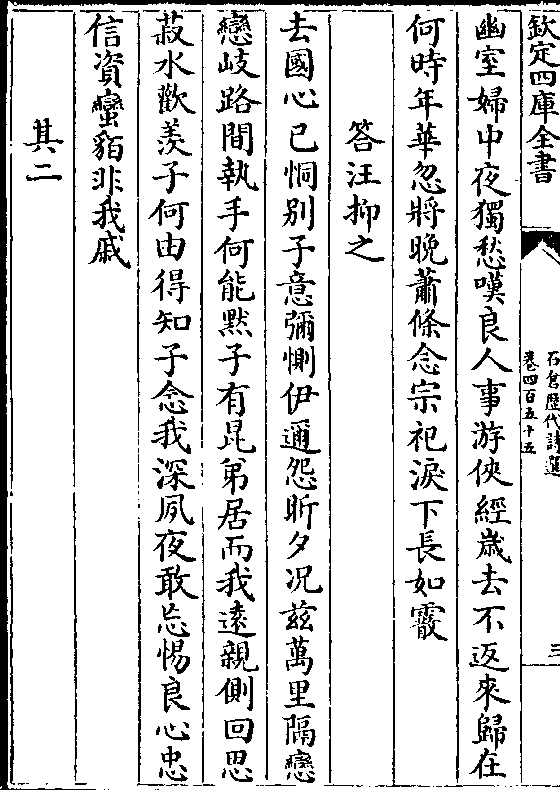 欽定四庫全書
石倉歴代詩選
卷四百五十五
三
幽室婦中夜獨愁嘆良人事游俠經歳去不返來歸在
何時年華忽將晚蕭條念宗祀淚下長如霰
答汪抑之
去國心已恫别子意彌惻伊邇怨昕夕况兹萬里隔戀
戀岐路間執手何能黙子有昆弟居而我逺親側回思
菽水歡羨子何由得知子念我深夙夜敢忘惕良心忠
信資蠻貊非我戚
其二